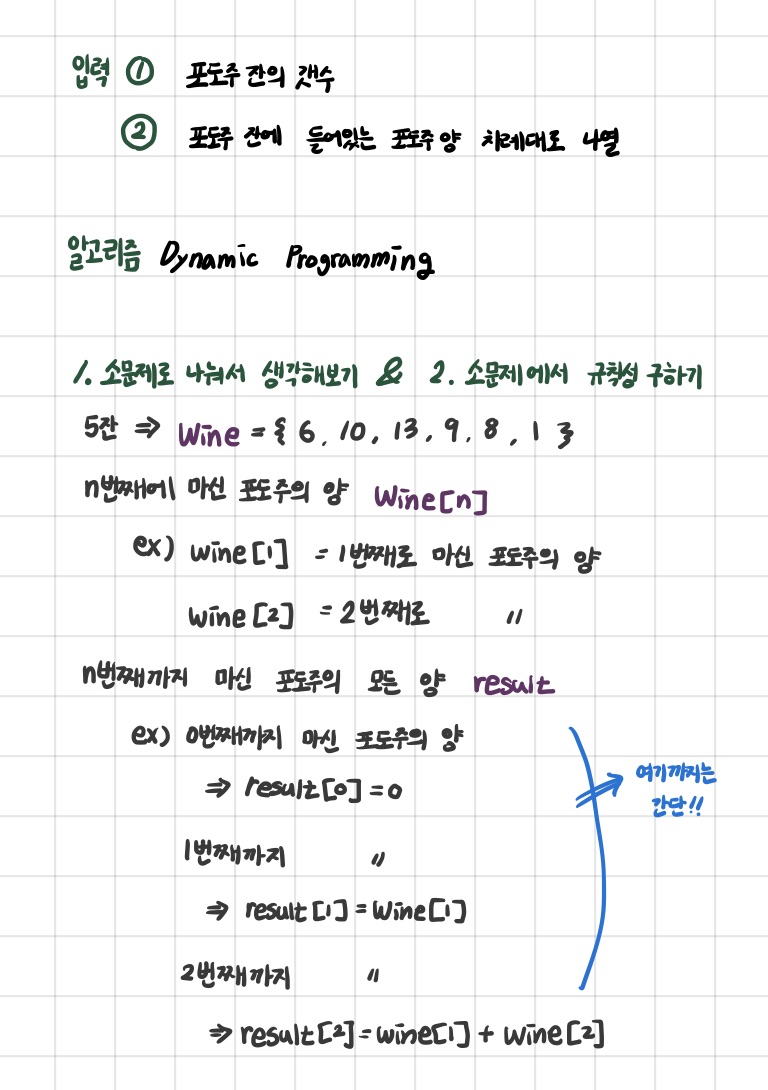 입력 ① 포도주 잔의 갯수
② 포도주 잔에 들어있는 포도주 양 차례대로 나열
알고리즘 Dynamic Programming
1. 소문제로 나눠서 생각해보기 & 2. 소문제에서 규칙성 구하기
5잔 ⇒ Wine = { 6, 10, 13, 9, 8, 1 }
n번째에 마신 포도주의 양 Wine[n]
ex) wine[1] = 1번째로 마신 포도주의 양
wine[2] = 2번째로 〃
n번째까지 마신 포도주의 모든 양 result
ex) 0번째까지 마신 포도주의 양
⇒ result[0] = 0
여기까지는
간단!!
1번째까지 〃
⇒ result[1] = Wine[1]
2번째까지 〃
⇒ result[2] = wine[1] + wine[2]